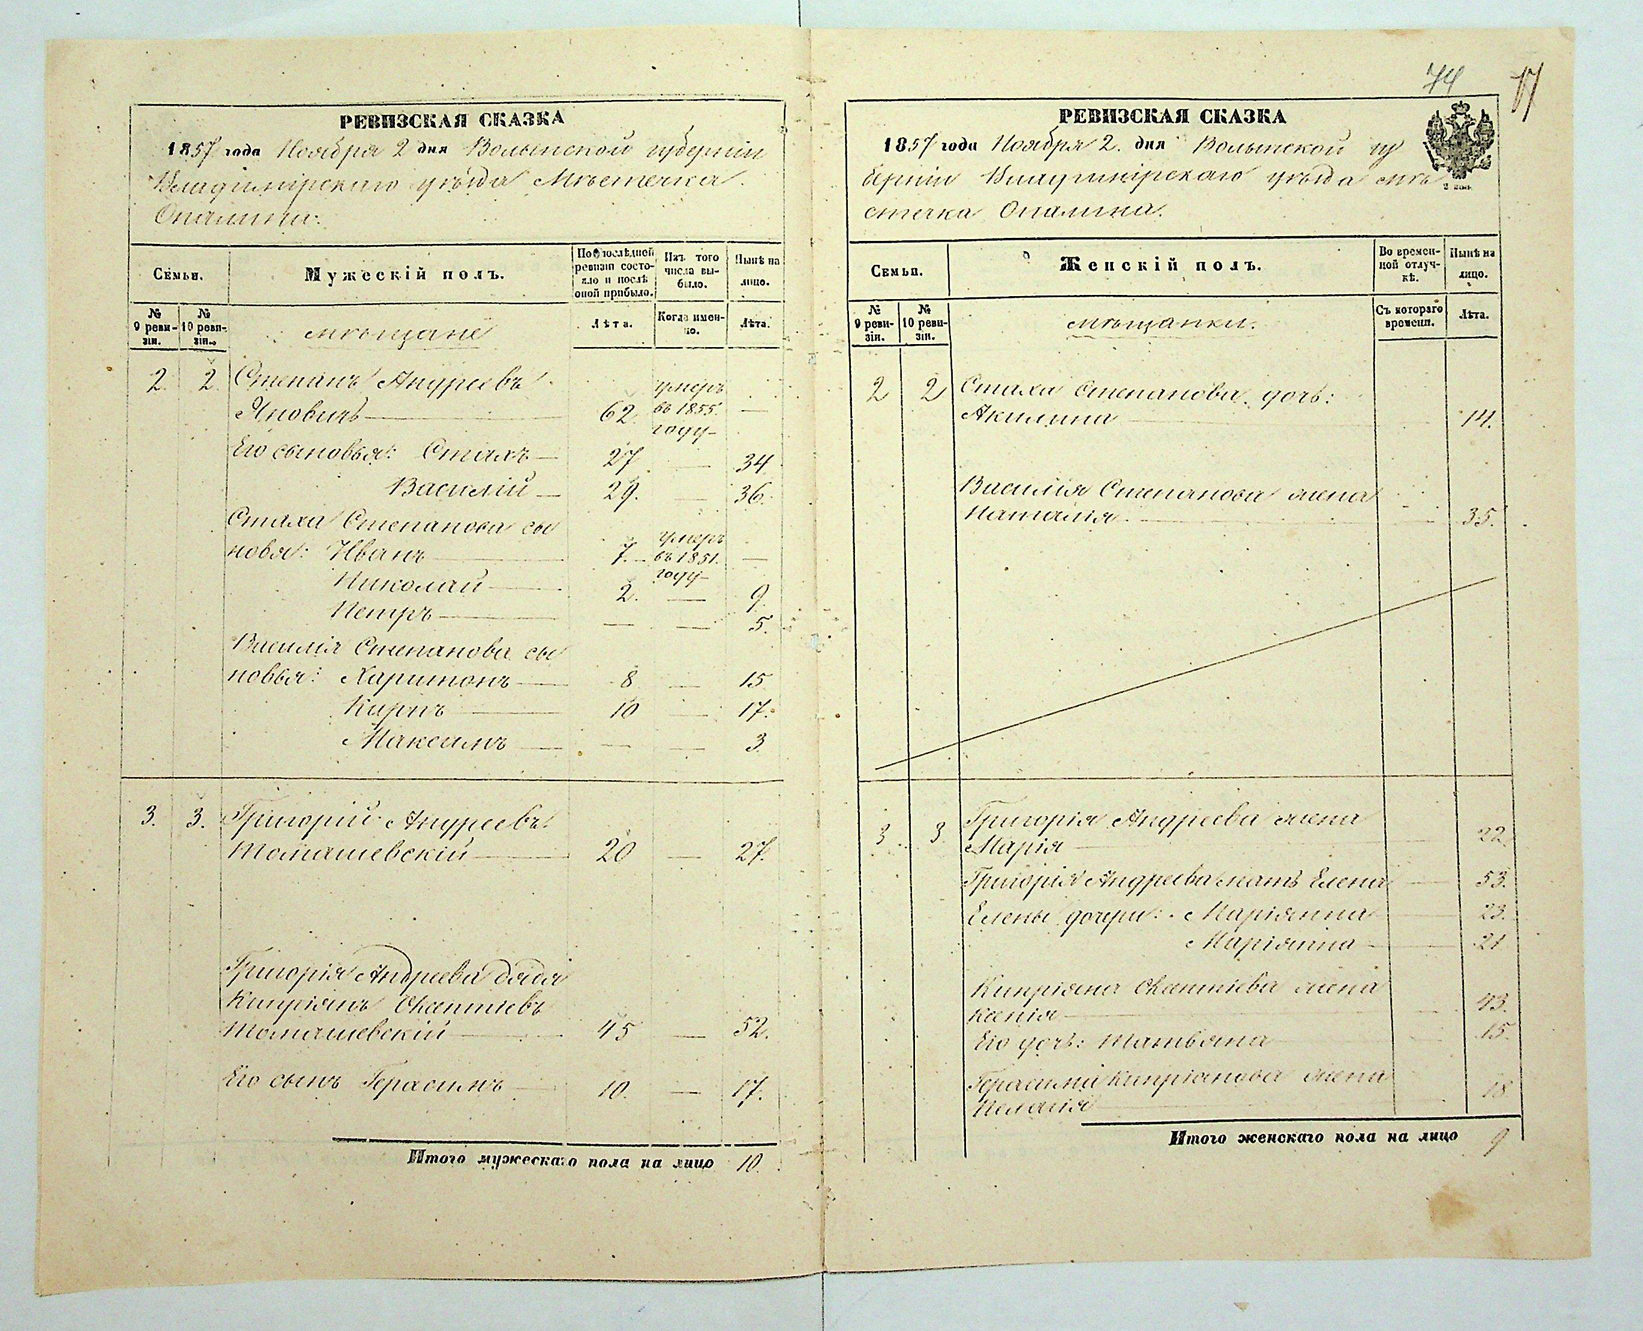 74 17
РЕВИЗСКАЯ СКАЗКА
1857 года Ноября 2 дня Волынской губерніи
Владимірскаго уѣзда Мѣстечка
Опалина:
Семьи.
Мужескій полъ.
По послѣдней ревизіи состояло и послѣ оной прибыло.
Изъ того числа выбыло.
Нынѣ на лицо.
№ 9 ревизіи.
№ 10 ревизіи.
мѣщане
Лѣта.
Когда именно.
Лѣта.
2. 2. Степанъ Андреевъ умеръ
Яновичъ 62. въ 1855. —
году
Его сыновья: Стахъ 27 — 34
Василій 29. — 36.
Стаха Степанова сы умеръ
новья: Иванъ 7. въ 1851. —
Николай году
2. — 9
Петръ — — 5.
Василія Степанова сы
новья: Харитонъ 8 — 15
Карпъ 10 — 17.
Максимъ — — 3
3. 3. Григорій Андреевъ
Томашевскій 20 — 27.
Григорія Андреева дядя
Кипріянъ
Томашевскій 45 — 52.
Его сынъ Герасимъ 10. — 17.
Итого мужескаго пола на лицо 10.
РЕВИЗСКАЯ СКАЗКА
1857 года Ноября 2. дня Волынской гу
берніи Владимірскаго уѣзда мѣ
стечка Опалина.
2 коп.
Семьи.
Женскій полъ.
Во временной отлучкѣ.
Нынѣ на лицо.
№ 9 ревизіи.
№ 10 ревизіи.
мѣщанки.
Съ котораго времени.
Лѣта.
2 2 Стаха Степанова дочь:
Акилина 14.
Василія Степанова жена
Наталія 35.
3 3 Григорія Андреева жена
Марія 22.
Григорія Андреева мать Елена 53.
Елены дочери: Маріянна 23.
Маріянна 21
Кипріяна жена
Ксенія 43.
Его дочь: Татьяна 15.
Герасима Кипріянова жена
Пелагія 18
Итого женскаго пола на лицо 9